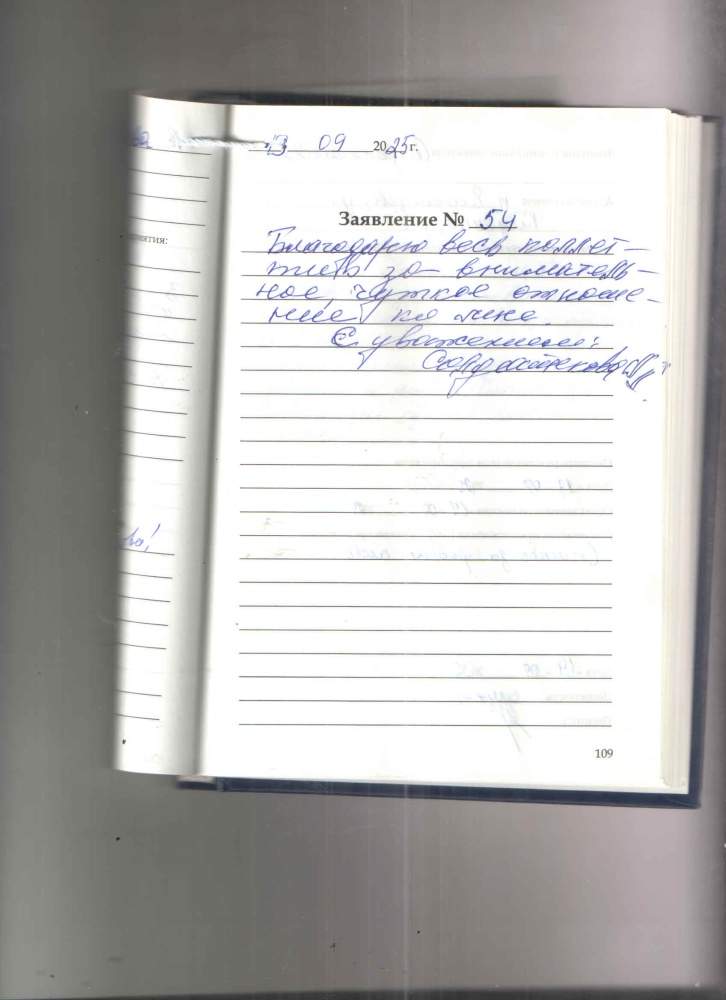 "13" 09 2025 г.
Заявление № 54
Благодарю весь коллек-
тив за вниматель-
ное, чуткое отноше-
ние ко мне.
С уважением:
иятия:
109